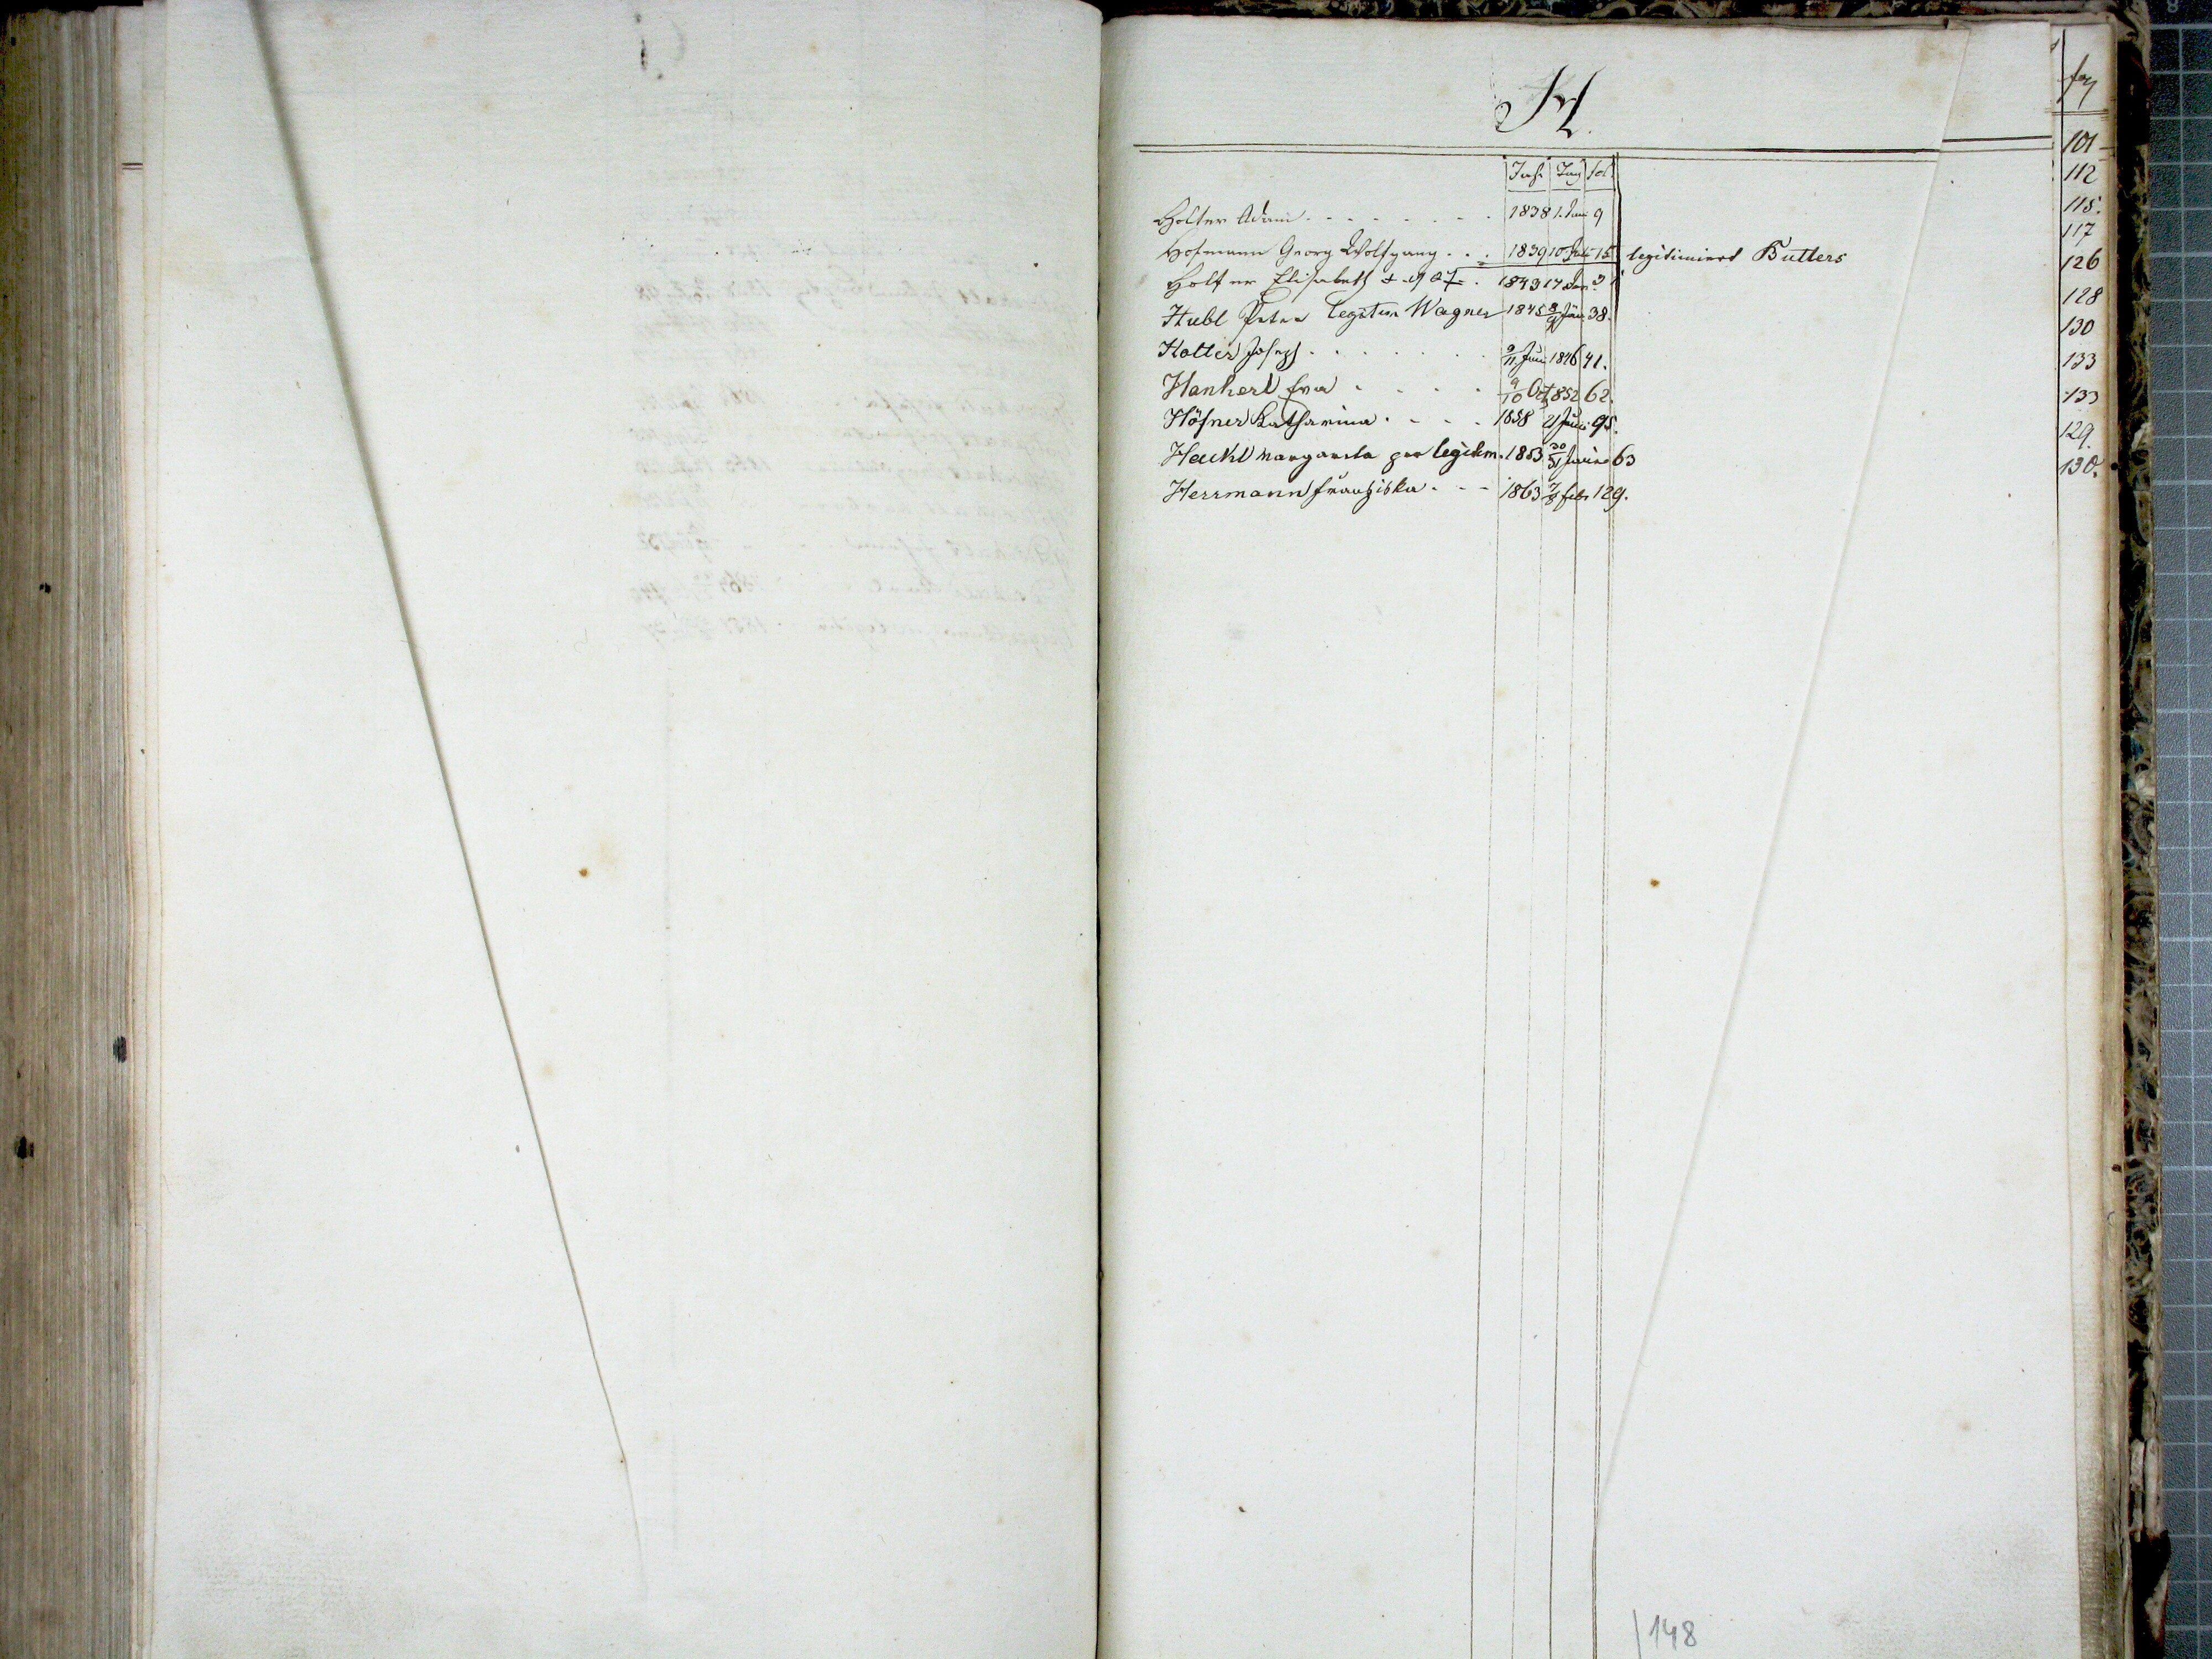 H.
Jahr Tag fol.
Holter Adam . . . . . . . . 1838 1. Jan 9
Hofmann Georg Wolfgang . . . 1839 10 15 legitimiert Butters
Holter Elisabeth 1843 17 Jan. 31
Hubl Peter legitim Wagner 1845 8/9 Jän. 38.
Holter Joseph . . . . . . . 9/11 Juni 1846 41.
Hankerl Eva . . . . . 9/10 Oct 852 62.
Höfner Katharina . . . . 1858 21 Juni 95.
Hackl Margareta per legitim. 1853 30/31 63
Herrmann Franziska . . . 1863 7/8 feb. 129.
101
112
115.
117
126
128
130
133
133
129.
130.
148